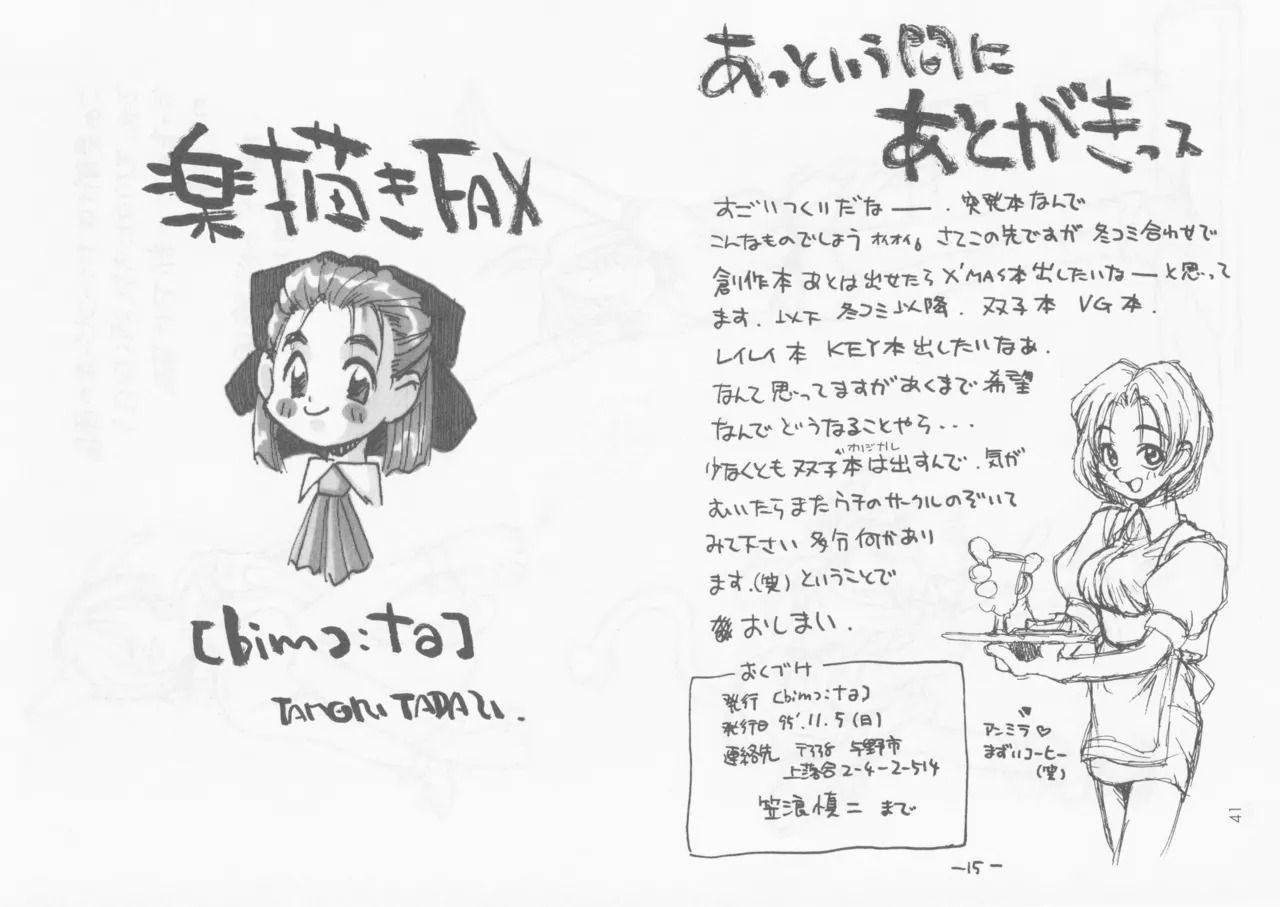 楽描きFAX
[bimつ:ta]
あっという間に
あとがきっス
すごいつくりだなー. 突発本なんで
こんなものでしょう オイオイ。さてこの先ですが 冬コミ合わせで
創作本 あとは出せたら X'MAS本出したいなーと思って
ます. 以下 冬コミ以降. 双子本 VG本.
レイレイ本 KEY本出したいなぁ.
なんて思ってますがあくまで希望
なんでどうなることやら...
オリジナル
少なくとも双子本は出すんで. 気が
むいたらまたウチのサークルのぞいて
みて下さい 多分何かあり
ます.(笑) ということで
おしまい.
おくづけ
発行 [bimつ:ta]
発行日 95'.11.5(日)
連絡先 〒338 与野市
上落合2-4-2-514
笠浪慎二 まで
アンミラ♡
まずいコーヒー
(笑)
-15-
41